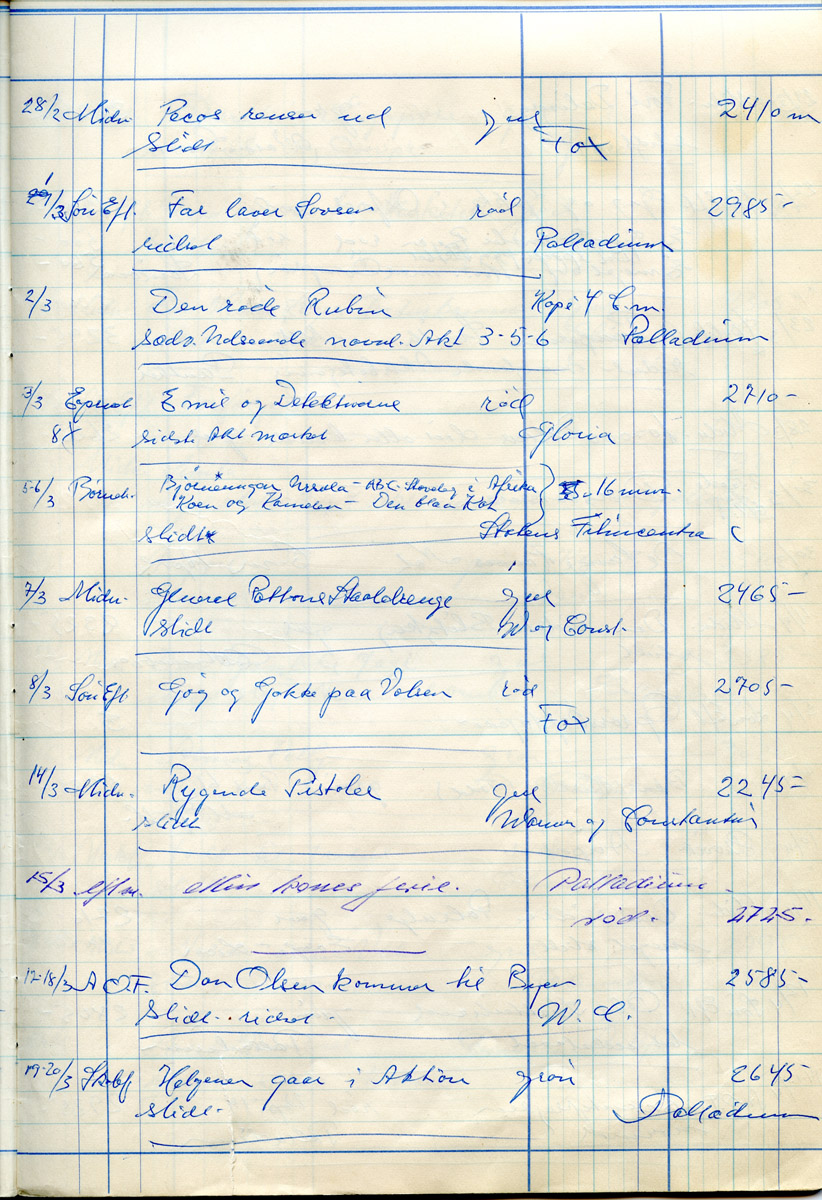 28/2 Midn. Pecos renser ud gul 2410 m
Slidt Fox
1/3 Søn Eft. Far laver Sovsen rød 2985-
ridset Palladium
2/3 Den røde Rubin Kopi 4 
Udseende normal. Akt 3-5-6 Palladium
3/3 Emil og Detektiverne rød 2710-
8 sidste Akt mærket Gloria
5-6/3 Børneh. Bjørneungen Ursula - ABC - i Afrika 16 mm.
Koen og Kamelen - Den blaa Kat
slidt Statens Filmcentral
7/3 Midn. General Pattons Staaldrenge gul 2465-
slidt W og Const.
8/3 Søn Eft. Gøg og Gokke paa Volsen rød 2705-
Fox
14/3 Midn. Rygende Pistoler gul 2245-
slidt Warner og Constantin
15/3 eftm. Min kones ferie. Palladium
rød. 2725.
17-18/3 A.O.F. Don Olsen kommer til Byen 2585-
Slidt. ridset. W. C.
19-20/3 Helgener gaar i Aktion grøn 2645-
Slidt. Palladium